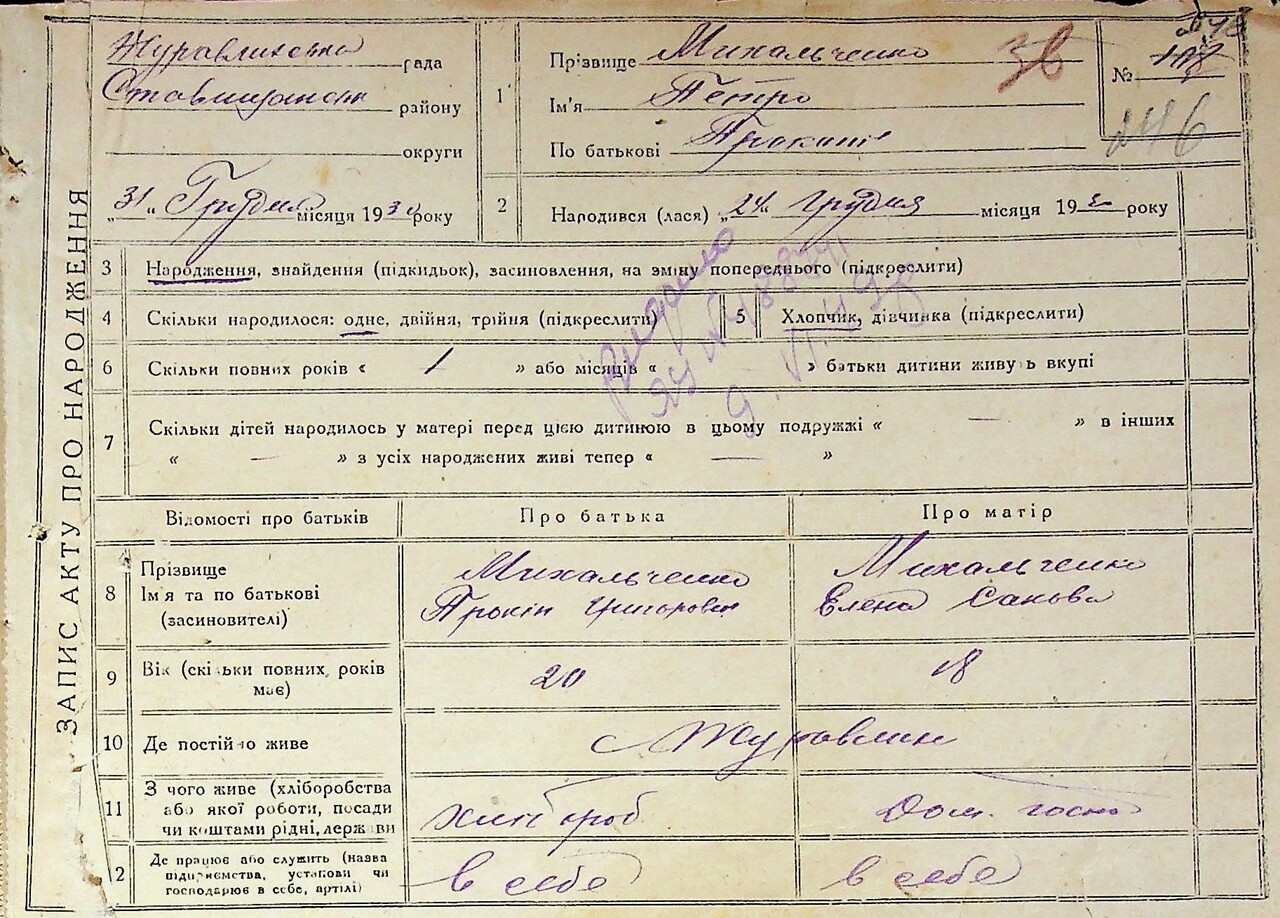 ЗАПИС АКТУ ПРО НАРОДЖЕННЯ
Журавлинська рада
Ставищанськ району
округи
"31" Грудня місяця 1930 року
1
Прізвище Михальченко
Ім'я Петро
По батькові Прокіпів
36
№
246
2 Народився (лася) "24" грудня місяця 1930 року
3 Народження, знайдення (підкидьок), засиновлення, на зміну попереднього (підкреслити)
4 Скільки народилося: одне, двійня, трійня (підкреслити) 5 Хлопчик, дівчинка (підкреслити)
6 Скільки повних років « 1 » або місяців « — » батьки дитини живуть вкупі
7 Скільки дітей народилось у матері перед цією дитиною в цьому подружжі « — » в інших
« — » з усіх народжених живі тепер « — »
Видано
ЯЦ №
9. VI.
Відомості про батьків Про батька Про матір
8 Прізвище Ім'я та по батькові (засиновителі) Михальченко Прокіп Григорович Михальченко Елена Сакова
9 Вік (скільки повних, років має) 20 18
10 Де постійно живе с Журавлин
11 З чого живе (хліборобства або якої роботи, посади чи коштами рідні, держави Хлібороб Дом. госп
12 Де працює або служить (назва підприємства, установи чи господарює в себе, артілі) в себе в себе